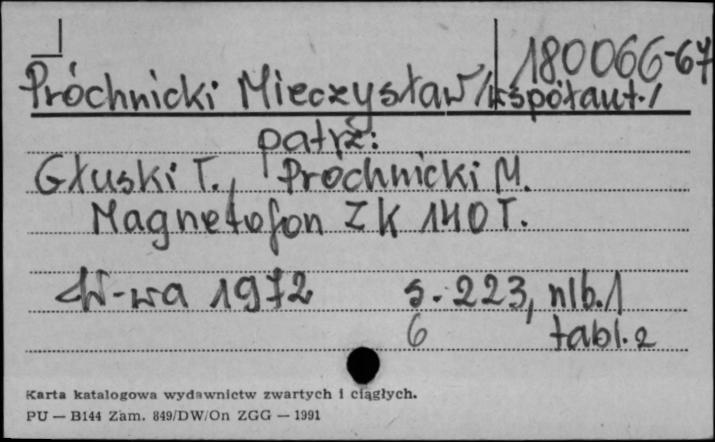 180066-67
Próchnicki Mieczysław /współaut./
patrz:
Głuski T., Próchnicki M.
Magnetofon ZK 140T.
W-wa 1972 s. 223, nlb. 1
6 tabl. 2
Karta katalogowa wydawnictw zwartych i ciągłych.
PU — B144 Zam. 849/DW/On ZGG — 1991